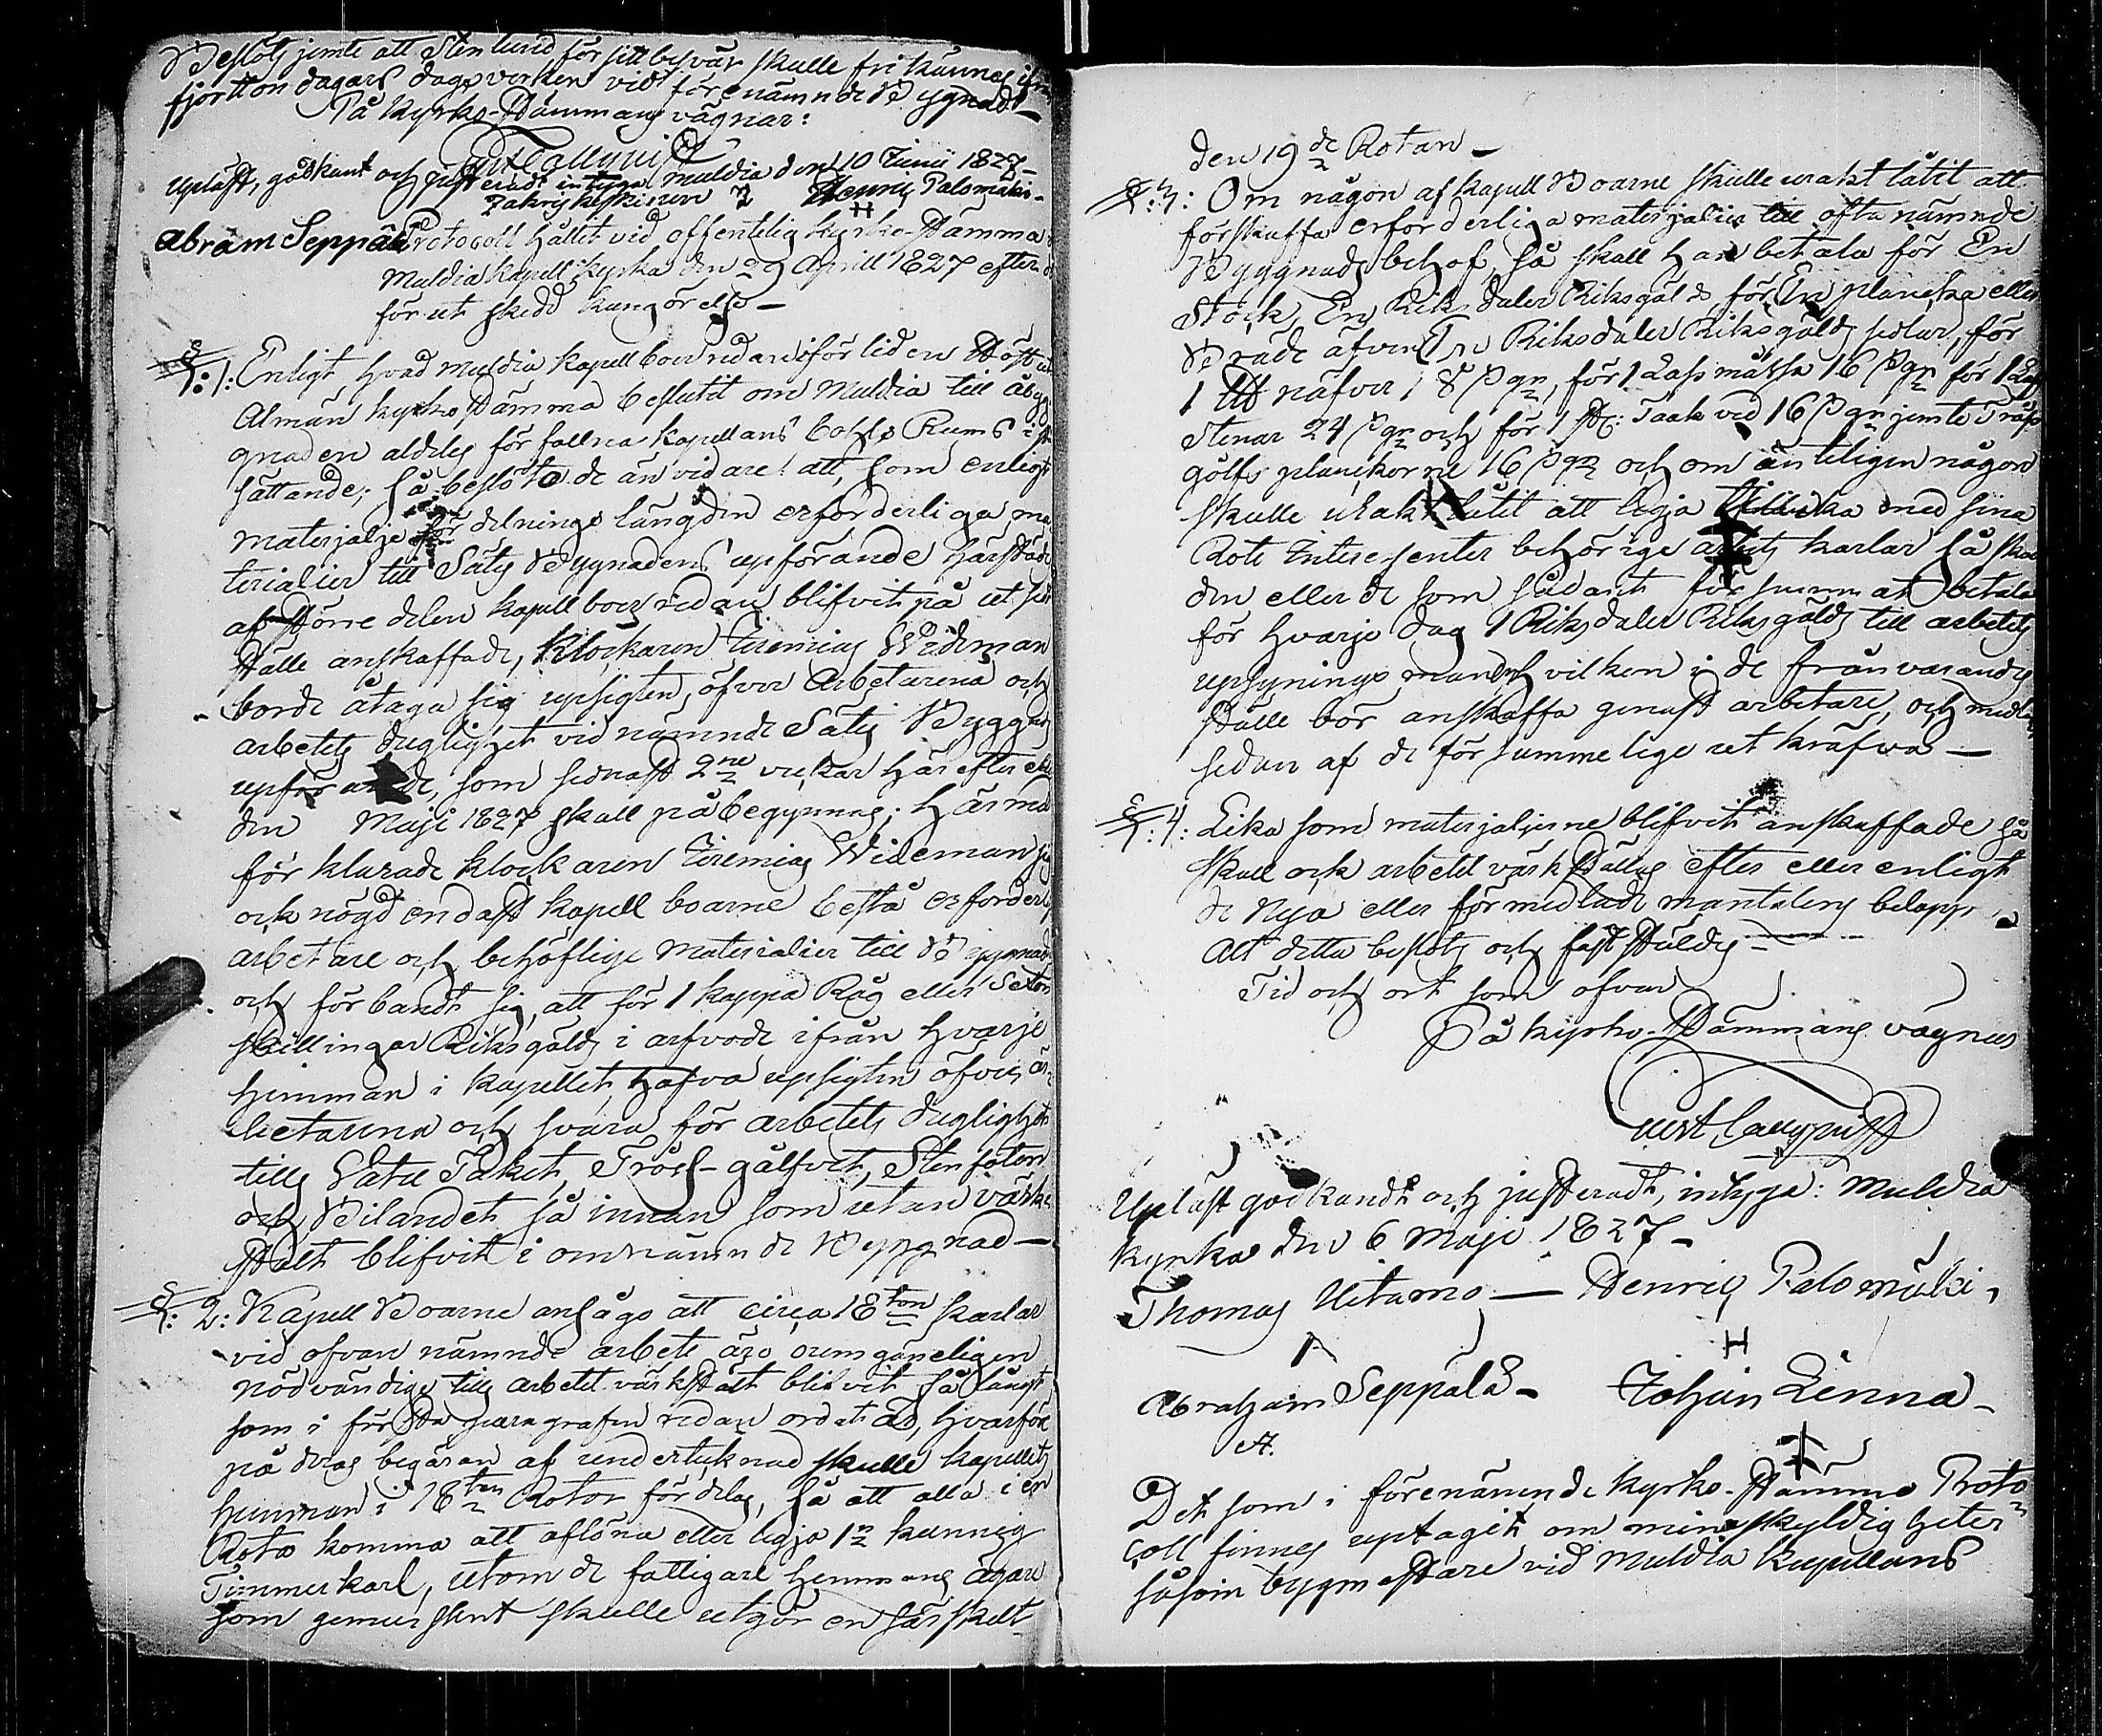 Beslöts jemte att Stenlund för sitt besvär skulle frikännas ifrån
fjortton dagars dagsverken vid förenämnde Byggnad –
På Kyrko-Stämmans vägnar:
Upläst, godkänt och justeradt intyga Muldia den 10 Junii 1827 –
Henric Palomäki –
Abram Seppälä
Protocoll hållit vid offentelig Kyrko-Stämma i
Muldia Kapell kyrka den 29 Aprill 1827 efter
förut skedd kungörelse –
§:1: Enligt, hvad Muldia Kapellboer redan i förliden Höst vid
Alman kyrko stämma beslutit om Muldia till åbyg
gnaden aldeles förfallna Kapellans bohls Rums i
sättande; så beslöto de än vidare: att, som enligt
materjalje fördelnings längden erforderliga ma
terialier till Sätes Bygnadens upförande härstäde
af större delen kapellboer redan blifvit på ut sedt
ställe anskaffade, Klockaren Jeremias Wideman
borde åtaga sig upsigten, öfver Arbetarena och
arbetets duglighet vid nämnde Sätes Byggnads
upförande, som sednast 2ne veckor härefter eller
den Maji 1827 skall påbegynnas; Härmed
förklarade klockaren Jeremias Wideman sig
ock nögd endast kapell boarne bestå erforderl
arbetare och behöflige Materialier till Byggnad
och förbandt sig, att för 1 kappa Råg eller Sexton
skillingar Riksgälds i arfvode ifrån hvarje
hemman i kapellet, hafva upsigten öfver ar-
betarena och svara för arbetets duglighet
tills Vatu Taket, Tross-gålfvet, Stenfoten
och Bilandet så innan som utan värk
stält blifvit i omnämnde Byggnad –
§: 2: Kapell Boarne ansågo att circa 18ton karlar
vid ofvan nämnde arbete äro oumgäneligen
nödvändige tills arbetet värkstält blifvit så långt
som i första paragrafen redan ordat är, hvarför
på dras begäran af undertecknad skulle kapellets
hemman i 18ton Rotor fördelas, så att alla i en
Rota komma att aflöna eller legja 1n kunnig
Timmerkarl, utom de fattigare hemmans ägare
som gemensamt skulle utgör en särskilt
den 19de Rotan –
§:3: Om någon af kapell Boarne skulle uraktlåtit att
förskaffa erforderliga materjalier till ofta nämnde
Byggnads behof, så skall han betala för En
Stock En Riksdaler Riksgälds, för En plancka eller
Bräde äfven En Riksdaler Riksgälds sedlar, för
1 näfver 18 sgr, för 1 Lass måssa 16 sgr för 1 Lass
Stenar 24 sgr och för 1 St: Taak ved 16 sgr jemte Tråss
gålfs planckorne 16 sgr och om änteligen någon
skulle uraktlåtit att legja tillika med sina
Rote Interessenter behörige arbets karlar så skal
den eller de som sådant försummat betala
för hvarje dag 1 Riksdaler Riksgälds till arbetets
upsynings man hvilken i de frånvarandes
ställe bör anskaffa genast arbetare, och medlen
sedan af de försummelige ut kräfva –
§:4: Lika som materjalierne blifvit anskaffade så
skall ock arbetet värkställas efter eller enligt
de nya eller förmedlade mantalens belopp
Alt detta beslöts och fastställdes –
Tid och ort som ofvan
På kyrko-Stämmans vägnar
Upläst godkändt och justeradt, intyga: Muldia
kyrka den 6 Maji 1827 –
Thomas Uitamo – Henric Palomäki,
Abraham Seppälä – Johan Linna –
Det som i förenämnde kyrko-Stämma Proto
coll finnes uptagit om mina skyldigheter
såsom bygmästare vid Muldia Kapellans